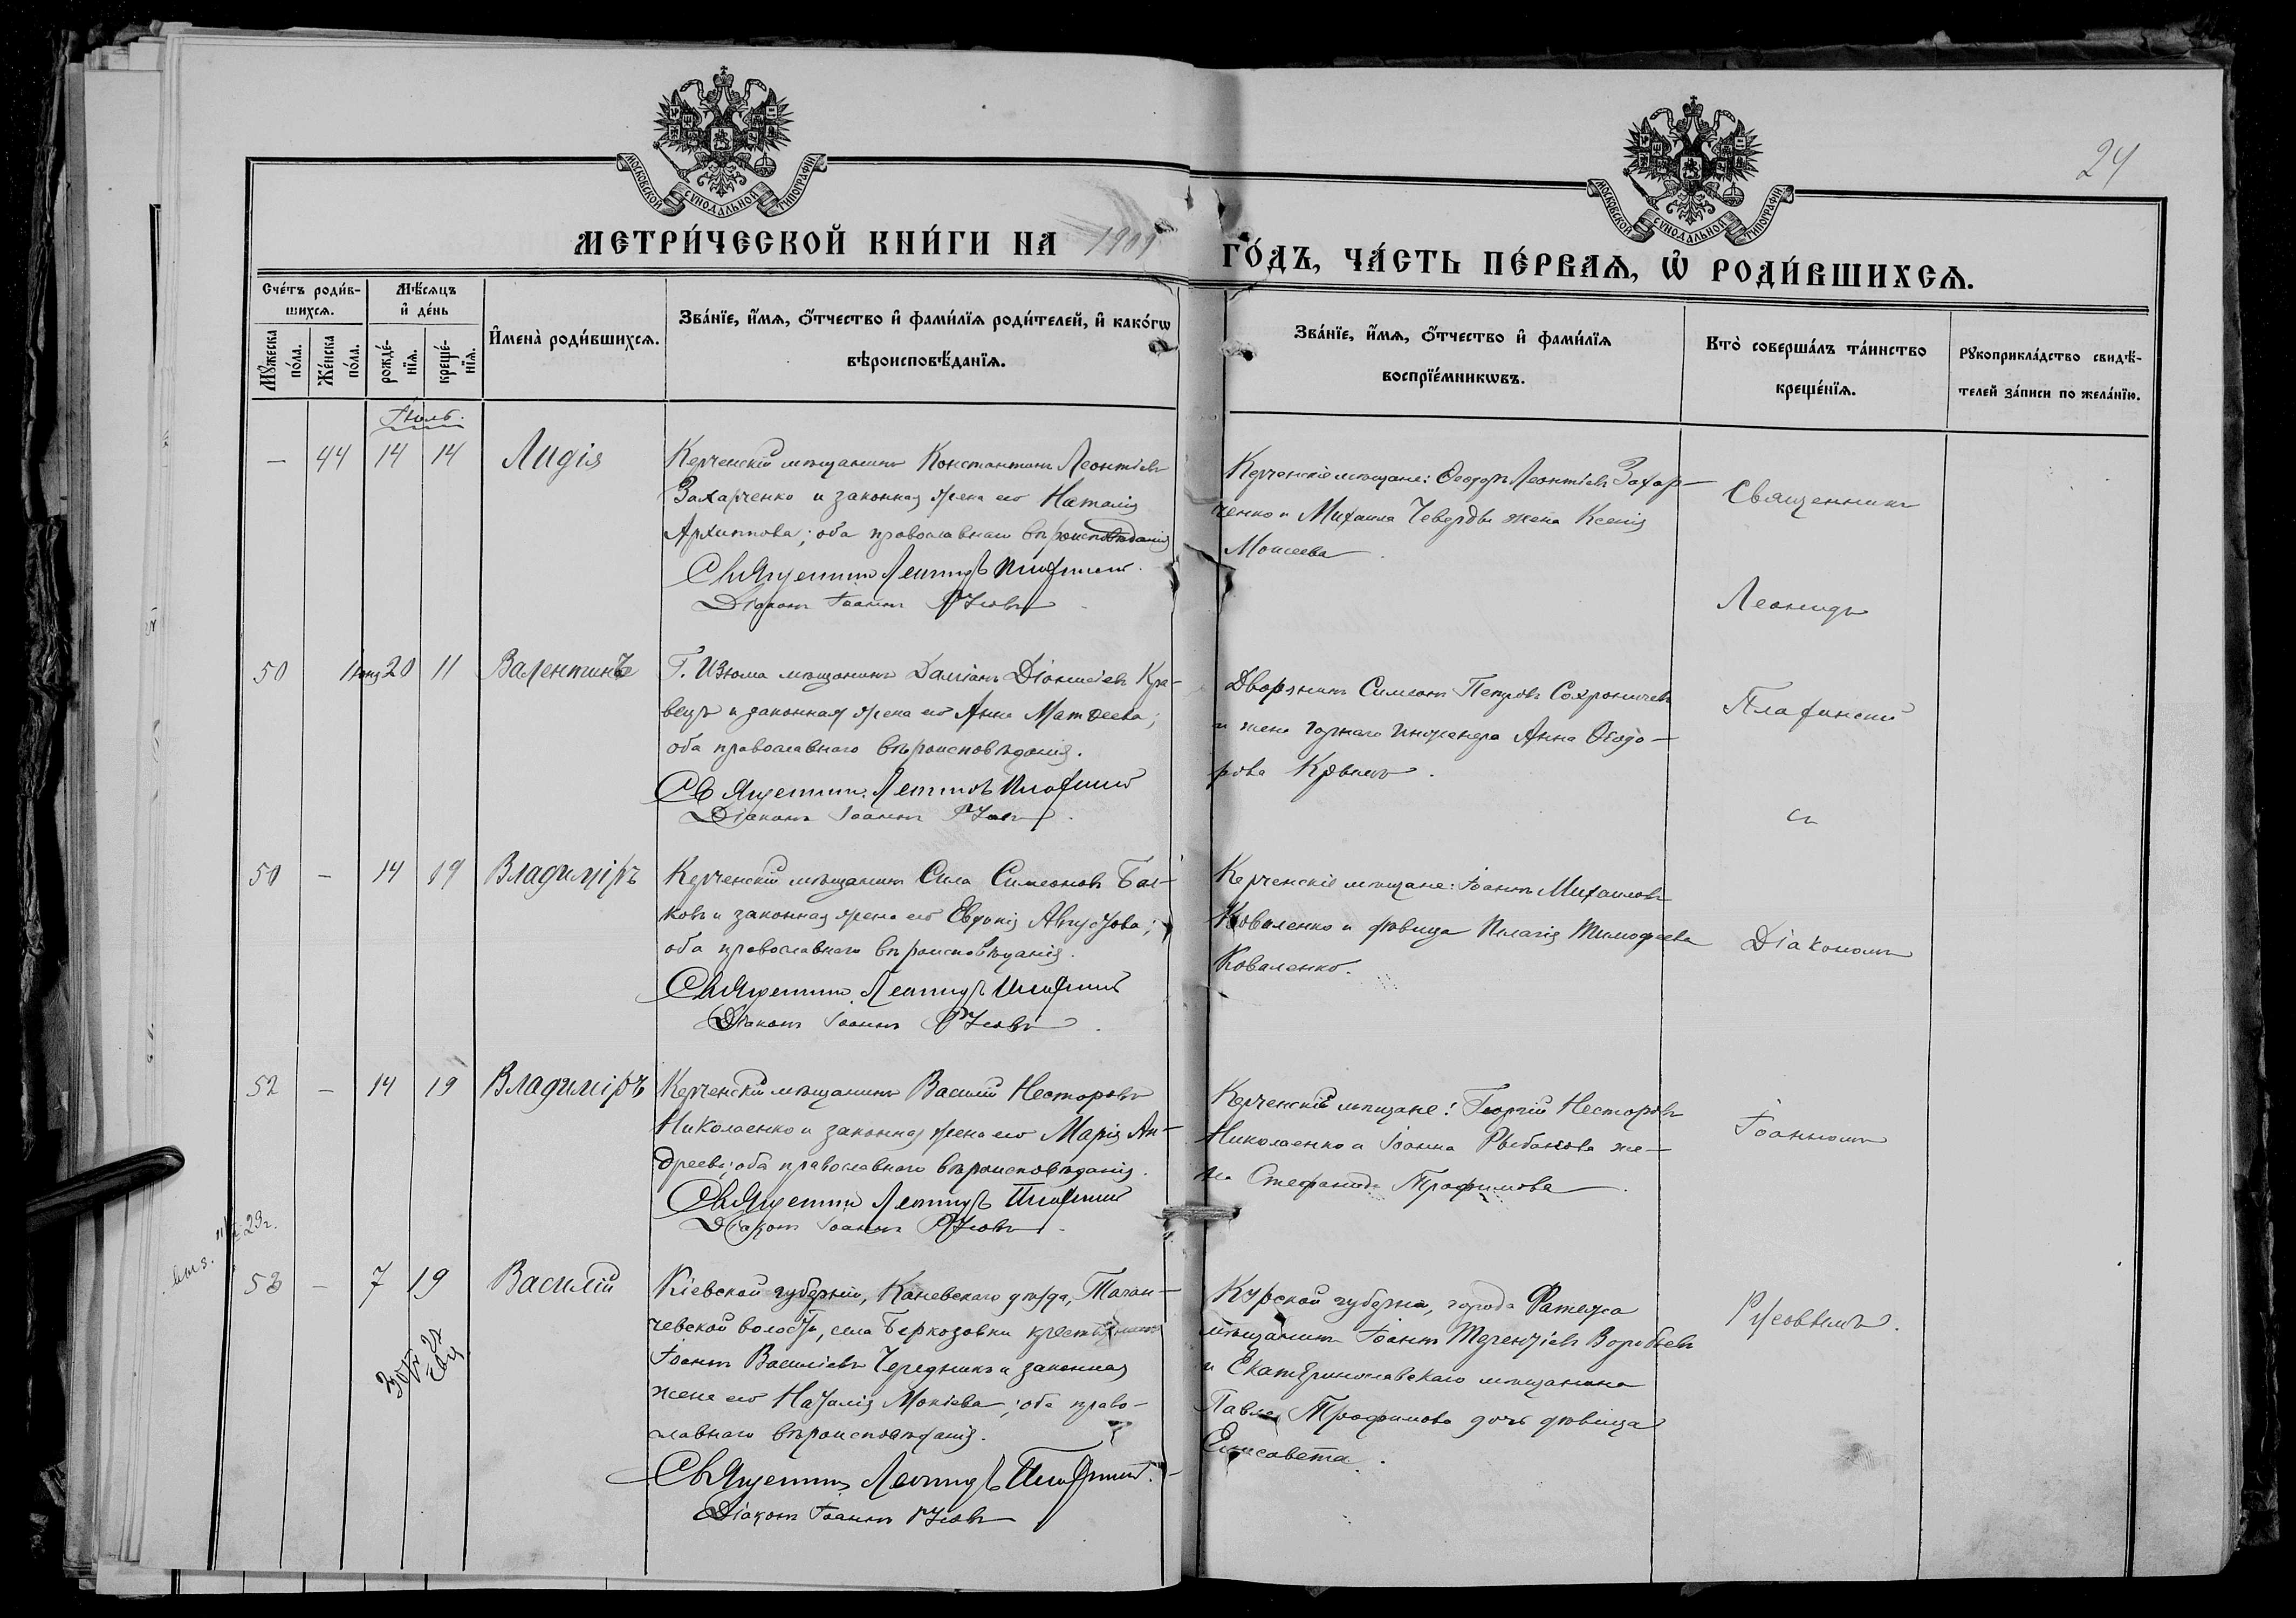 МОСКОВСКОЙ СѴНОДАЛЬНОЙ ТИПОГРАФІИ
МОСКОВСКОЙ СѴНОДАЛЬНОЙ ТИПОГРАФІИ
24
МЕТРИ́ЧЕСКОЙ КНИ́ГИ НА 1901 ГО́ДЪ, ЧА́СТЬ ПЕ́РВАѦ, Ѡ РОДИ́ВШИХСѦ.
Сче́тъ роди́в-
шихсѧ.
Мꙋ́жеска
по́ла.
Же́нска
по́ла.
Мѣ́сѧцъ
и҆ де́нь
рожде́-
нїѧ.
креще́-
нїѧ.
И҆мена̀ роди́вшихсѧ.
Зва́нїе, и҆́мѧ, ѻ҆́тчество и҆ фами́лїѧ роди́телей, и҆ како́гѡ
вѣроисповѣ́данїѧ.
Зва́нїе, и҆́мѧ, ѻ҆́тчество и҆ фами́лїѧ
воспрїе́мникѡвъ.
Кто̀ соверша́лъ та́инство
креще́нїѧ.
Рꙋкоприкла́дство свидѣ́-
телей за́писи по жела́нїю.
Іюль.
— 44 14 14 Лидія
Керченскій мѣщанинъ Константинъ Леонтіевъ
Захарченко и законная жена его Наталія
Архиппова; оба православнаго вѣроисповѣданія
Священникъ Леонидъ Плафинскій
Діаконъ Іоаннъ Русовъ
Керченскіе мѣщане: Ѳеодоръ Леонтіевъ Захар-
ченко и Михаила жена Ксенія
Моисеева
Священникъ
Леонидъ
50 20 11 Валентинъ
Г. Изюма мѣщанинъ Даміанъ Діонисіевъ Кра-
вецъ и законная жена его Анна Матѳеева;
оба православнаго вѣроисповѣданія.
Священникъ Леонидъ Плафинскій
Діаконъ Іоаннъ Русовъ
Дворянинъ Симеонъ Петровъ
и жена горнаго инженера Анна Ѳеодо-
рова
Плафинскій
съ
51 — 14 19 Владиміръ
Керченскій мѣщанинъ Сила Симеоновъ
ковъ и законная жена его Евдокія Августова;
оба православнаго вѣроисповѣданія.
Священникъ Леонидъ Плафинскій
Діаконъ Іоаннъ Русовъ
Керченскіе мѣщане: Іоаннъ Михаиловъ
Коваленко и дѣвица Пелагія Тимофеева
Коваленко.
Діакономъ
52 — 14 19 Владиміръ
Керченскій мѣщанинъ Василій Несторовъ
Николаенко и законная жена его Марія Ан-
дреева; оба православнаго вѣроисповѣданія.
Священникъ Леонидъ Плафинскій
Діаконъ Іоаннъ Русовъ
Керченскіе мѣщане: Георгій Несторовъ
Николаенко и Іоанна Рыбакова же-
на Стефанида Трофимова
Іоанномъ
53 — 7 19 Василій
Кіевской губерніи, Каневскаго уѣзда, Таган-
чевской волости, села Беркозовки крестьянинъ
Іоаннъ Василіевъ Чередникъ и законная
жена его Наталія Мокіева; оба право-
славнаго вѣроисповѣданія.
Священникъ Леонидъ Плафинскій
Діаконъ Іоаннъ Русовъ
Курской губерніи, города Фатежа
мѣщанинъ Іоаннъ Терентіевъ Воробьевъ
и Екатеринославскаго мѣщанина
Павла Трофимова дочь дѣвица
Елисавета.
Русовымъ.